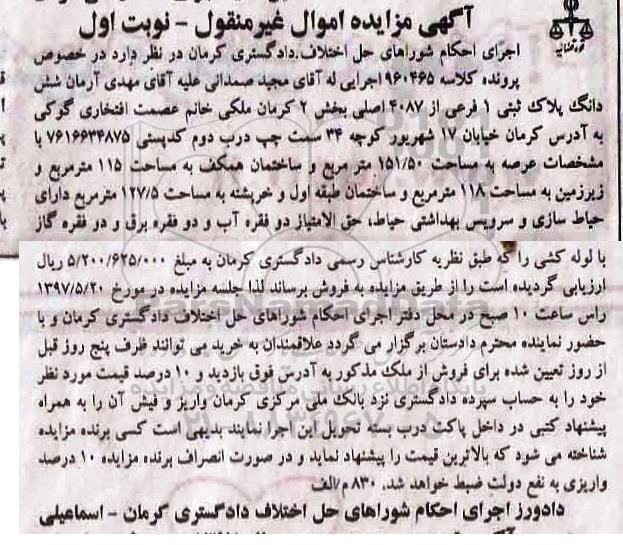 آگهی مزایده اموال غیرمنقول - نوبت اول
اجرای احکام شوراهای حل اختلاف دادگستری کرمان در نظر دارد در خصوص
پرونده کلاسه ۹۶۰۴۶۵ اجرایی له آقای مجید صمدانی علیه آقای مهدی آرمان شش
دانگ پلاک ثبتی ۱ فرعی از ۴۰۸۷ اصلی بخش ۲ کرمان ملکی خانم عصمت افتخاری گوکی
به آدرس کرمان خیابان ۱۷ شهریور کوچه ۳۴ سمت چپ درب دوم کدپستی ۷۶۱۶۶۳۴۸۷۵ با
مشخصات عرصه به مساحت ۱۵۱/۵۰ متر مربع و ساختمان همکف به مساحت ۱۱۵ مترمربع و
زیرزمین به مساحت ۱۱۸ مترمربع و ساختمان طبقه اول و خرپشته به مساحت ۱۲۷/۵ مترمربع دارای
حیاط سازی و سرویس بهداشتی حیاط، حق الامتیاز دو فقره آب و دو فقره برق و دو فقره گاز
با لوله کشی را که طبق نظریه کارشناس رسمی دادگستری کرمان به مبلغ ۵/۲۰۰/۶۲۵/۰۰۰ ریال
ارزیابی گردیده است را از طریق مزایده به فروش برساند لذا جلسه مزایده در مورخ ۱۳۹۷/۵/۲۰
راس ساعت ۱۰ صبح در محل دفتر اجرای احکام شوراهای حل اختلاف دادگستری کرمان و با
حضور نماینده محترم دادستان برگزار می گردد علاقمندان به خرید می توانند ظرف پنج روز قبل
از روز تعیین شده برای فروش از ملک مذکور به آدرس فوق بازدید و ۱۰ درصد قیمت مورد نظر
خود را به حساب سپرده دادگستری نزد بانک ملی مرکزی کرمان واریز و فیش آن را به همراه
پیشنهاد کتبی در داخل پاکت درب بسته تحویل این اجرا نمایند بدیهی است کسی برنده مزایده
شناخته می شود که بالاترین قیمت را پیشنهاد نماید و در صورت انصراف برنده مزایده ۱۰ درصد
واریزی به نفع دولت ضبط خواهد شد. ۸۳۰ م/الف
دادورز اجرای احکام شوراهای حل اختلاف دادگستری کرمان - اسماعیلی